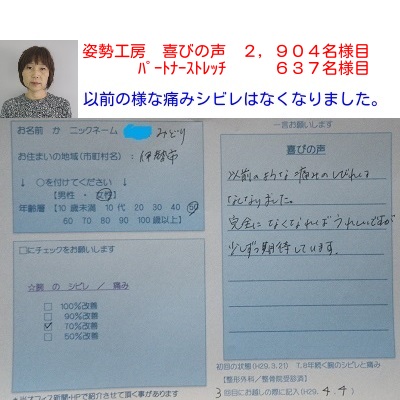 姿勢工房 喜びの声 2,904名様目
パートナーストレッチ 637名様目
以前の様な痛みシビレはなくなりました。
お名前 か ニックネーム みどり
お住まいの地域(市町村名): 伊勢市
↓ ○を付けてください ↓
【男性 ・ 女性】
年齢層 【10歳未満 10代 20 30 40 50
60 70 80 90 100歳以上】
□にチェックをお願いします
☆腕 の シビレ / 痛み
□ 100%改善
□ 90%改善
☑ 70%改善
□ 50%改善
□
★当オフィス新聞・HPで紹介させて頂く事があります
一言お願いします
喜びの声
以前のような痛みしびれは
なくなりました。
完全になくなればうれしいですが
少しずつ期待しています。
初回の状態(H29.3.21) 7,8年続く腕のシビレと痛み
【整形外科/整骨院受診済】
3回目にお越しの際に記入(H29. 4.4)